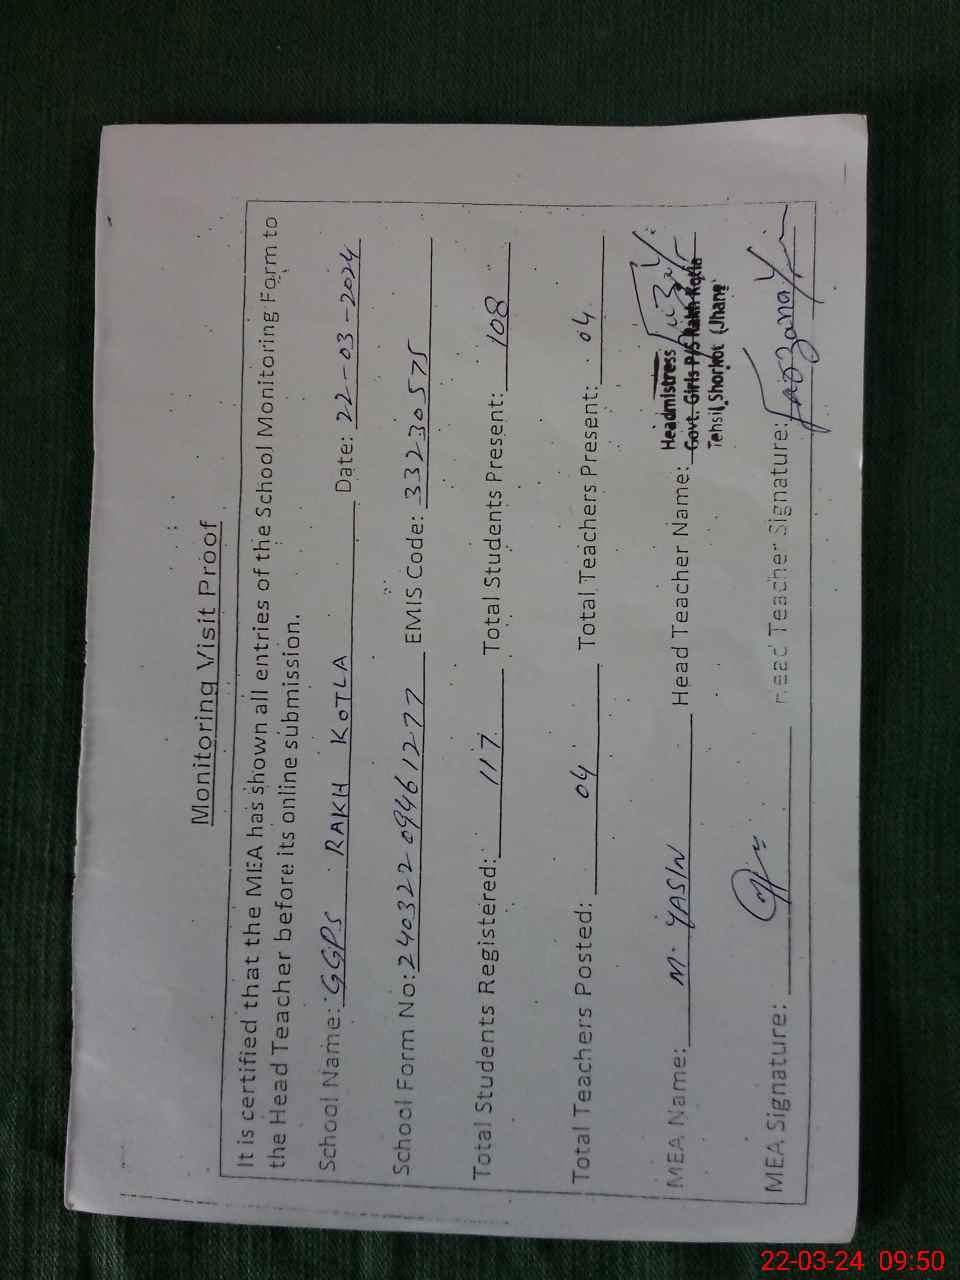 Monitoring Visit Proof
It is certified that the MEA has shown all entries of the School Monitoring Form to
the Head Teacher before its online submission.
School Name: GGPS RAKH KOTLA Date: 22-03-2024
School Form No: 240322 09461277 EMIS Code: 33230575
Total Students Registered: 117 Total Students Present: 108
Total Teachers Posted: 04 Total Teachers Present: 04
MEA Name: M. YASIN Head Teacher Name:
Headmistress
Govt. Girls P/S Rakh Kotla
Tehsil Shorkot (Jhang
MEA Signature: Head Teacher Signature:
22-03-24 09:50